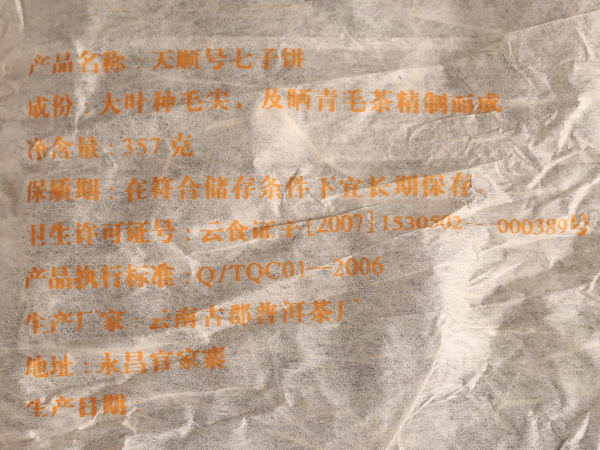 产品名称：天顺号七子饼
成份：大叶种毛尖，及晒青毛茶精制而成
净含量：357克
保质期：在符合储存条件下宜长期保存。
卫生许可证号：云食证字[2007]1530502－000389号
产品执行标准：Q/TQC01--2006
生产厂家：云南古郡普洱茶厂
地址：永昌官家寨
生产日期：